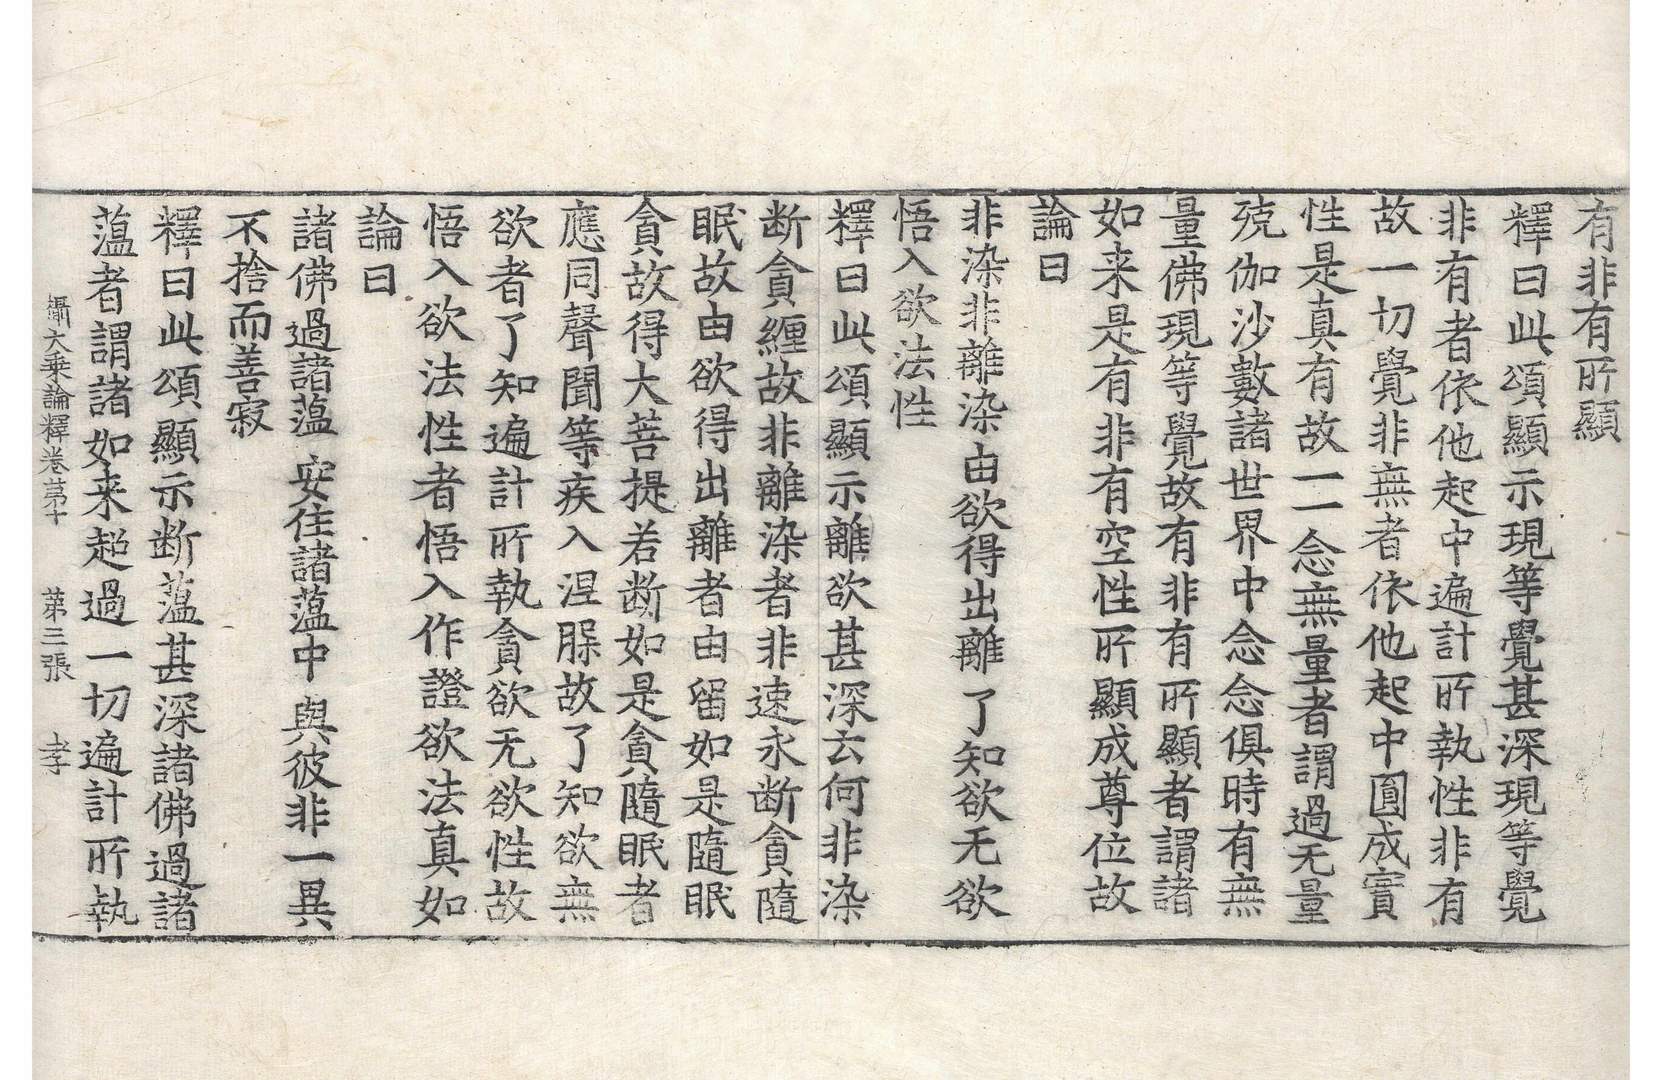 有非有所顯
釋曰此頌顯示現等覺甚深現等覺
非有者依他起中遍計所執性非有
故一切覺非無者依他起中圓成實
性是真有故一一念無量者謂過无量
殑伽沙數諸世界中念念俱時有無
量佛現等覺故有非有所顯者謂諸
如来是有非有空性所顯成尊位故
論曰
非染非離染由欲得出離 了知欲无欲
悟入欲法性
釋曰此頌顯示離欲甚深云何非染
断貪纏故非離染者非速永断貪隨
眠故由欲得出離者由留如是隨眠
貪故得大菩提若断如是貪隨眠者
應同聲聞等疾入涅槃故了知欲無
欲者了知遍計所執貪欲无欲性故
悟入欲法性者悟入作證欲法真如
論曰
諸佛過諸薀 安住諸薀中 與彼非一異
不捨而善寂
釋曰此頌顯示断薀甚深諸佛過諸
薀者謂諸如来超過一切遍計所執
攝大乗論釋卷苐十 苐三張 孝